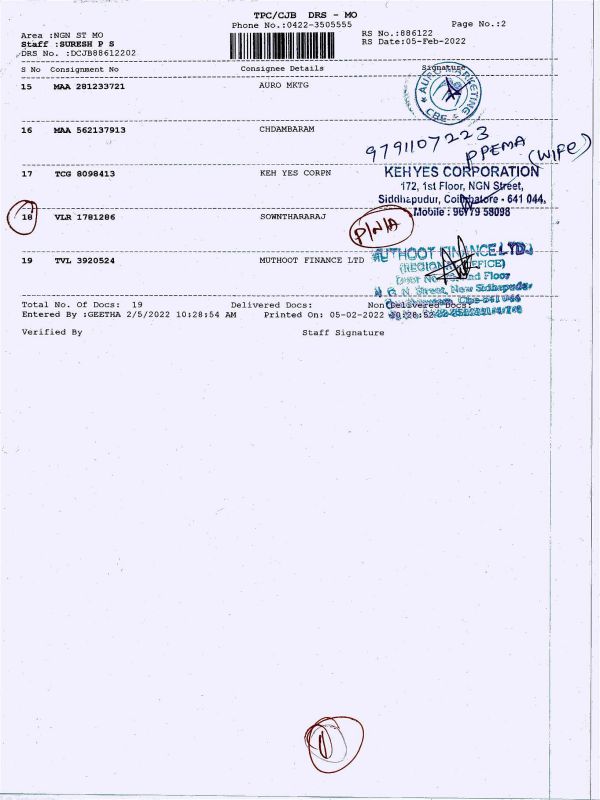 TPC/CJB DRS - MO
Phone No.:0422-3505555
Page No.:2
Area :NGN ST MO
Staff :SURESH P S
DRS No. :DCJB88612202
RS No.:886122
RS Date:05-Feb-2022
S No Consignment No Consignee Details Signature
15 MAA 281233721 AURO MKTG
AURO MARKETING
CBE
16 MAA 562137913 CHDAMBARAM
9791107223
PPEMA (WIFE)
17 TCG 8098413 KEH YES CORPN
KEHYES CORPORATION
172, 1st Floor, NGN Street,
Siddhapudur, Coimbatore - 641 044.
Mobile : 96779 58098
18 VLR 1781286 SOWNTHARARAJ
P/N/A
19 TVL 3920524 MUTHOOT FINANCE LTD
MUTHOOT FINANCE LTD.,
(REGIONAL OFFICE)
Door No. 2nd Floor
N. G. N. Street, New Sidhapudur
Cbe-641 044
Total No. Of Docs: 19 Delivered Docs: Non Delivered Docs:
Entered By :GEETHA 2/5/2022 10:28:54 AM Printed On: 05-02-2022
Verified By Staff Signature